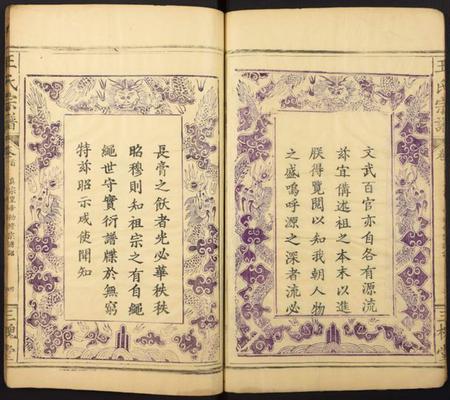 文武百官亦自各有源流
茲宜備述祖之本末以進
朕得覽閱以知我朝人物
之盛嗚呼源之深者流必
長膏之飫者光必華秩秩
昭穆則知祖宗之有自繩
繩世守實衍譜牒於無窮
特茲昭示咸使聞知
王氏宗譜
卷首
三槐堂